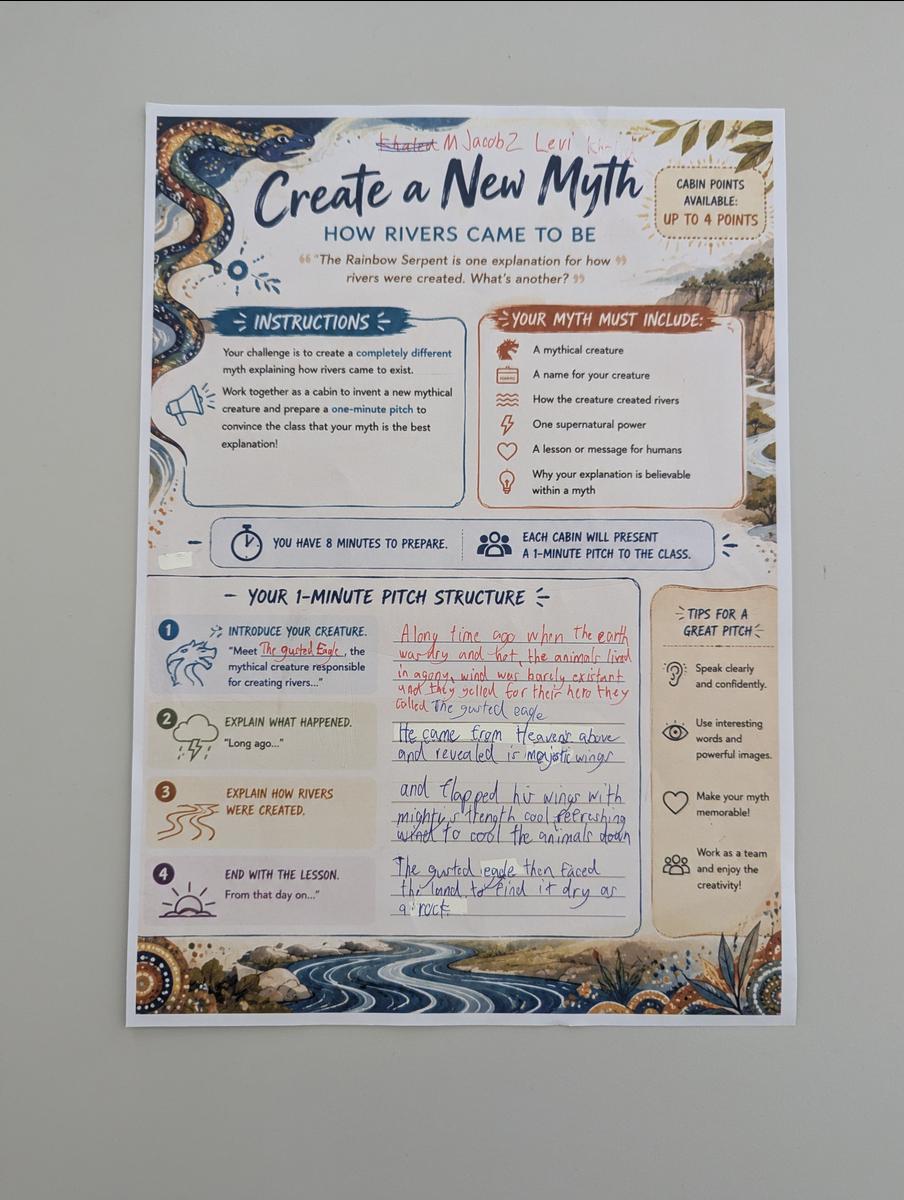 Khaled M Jacob Z Levi
Create a New Myth
HOW RIVERS CAME TO BE
“ “The Rainbow Serpent is one explanation for how ”
rivers were created. What's another? ”
CABIN POINTS
AVAILABLE:
UP TO 4 POINTS
INSTRUCTIONS
Your challenge is to create a completely different
myth explaining how rivers came to exist.
Work together as a cabin to invent a new mythical
creature and prepare a one-minute pitch to
convince the class that your myth is the best
explanation!
YOUR MYTH MUST INCLUDE:
A mythical creature
A name for your creature
How the creature created rivers
One supernatural power
A lesson or message for humans
Why your explanation is believable
within a myth
YOU HAVE 8 MINUTES TO PREPARE.
EACH CABIN WILL PRESENT
A 1-MINUTE PITCH TO THE CLASS.
– YOUR 1-MINUTE PITCH STRUCTURE
1
INTRODUCE YOUR CREATURE.
“Meet The gusted Eagle, the
mythical creature responsible
for creating rivers...”
A long time ago when the earth
was dry and hot, the animals lived
in agony, wind was barely existant
and they yelled for their hero they
called The gusted eagle
2
EXPLAIN WHAT HAPPENED.
“Long ago...”
He came from Heavens above
and revealed is majestic wings
3
EXPLAIN HOW RIVERS
WERE CREATED.
and flapped his wings with
mighty strength cool refreshing
wind to cool the animals down
4
END WITH THE LESSON.
From that day on...”
The gusted eagle then faced
the land to find it dry as
a rock
TIPS FOR A
GREAT PITCH
Speak clearly
and confidently.
Use interesting
words and
powerful images.
Make your myth
memorable!
Work as a team
and enjoy the
creativity!